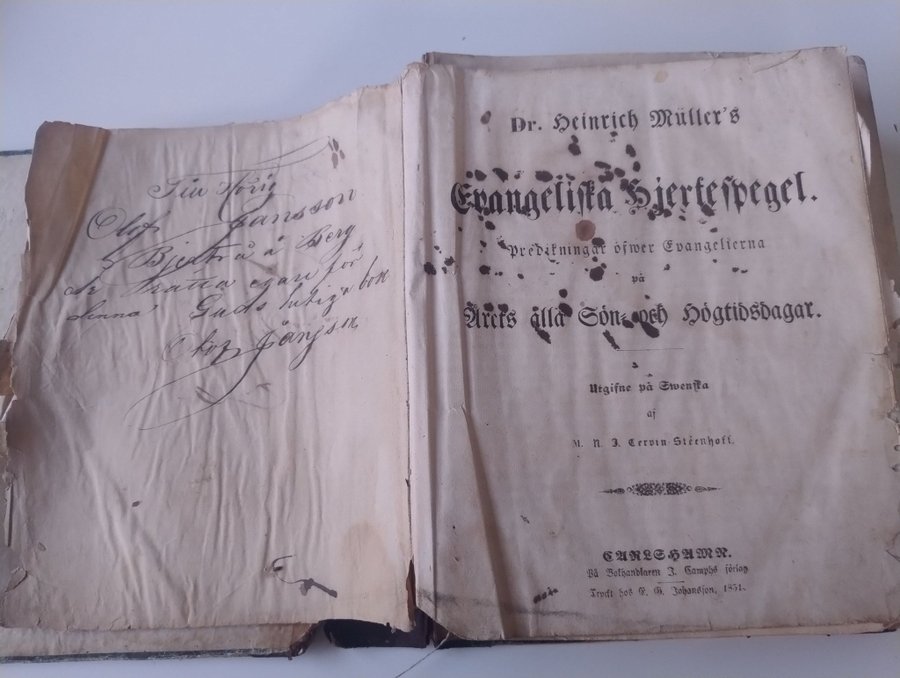 Olof Jansson
Bjertrå å Berg
är Rätta egare för
denna Guds heliga bok
Olof Jansson
Dr. Heinrich Müller's
Evangeliska Hjertespegel.
Predikningar öfwer Evangelierna
på
Årets alla Sön- och Högtidsdagar.
Utgifne på Swenska
af
M. N. J. Cervin Steenhoff.
CARLSHAMN.
På Bokhandlaren J. Gamphs förlag
Tryckt hos E. G. Johansson, 1851.